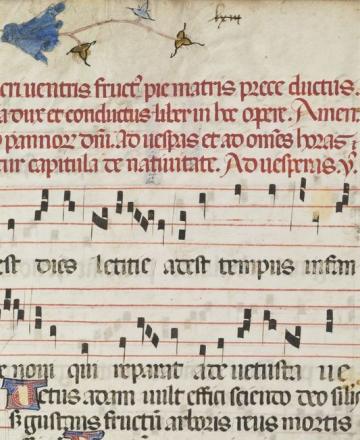 lxiii
en uentris fruct⁹ pie matris prece ductus.
a dux et conductus liber in hoc opere. Amen.
pannor dñi. Ad uespas et ad om̃es horas
tur capitula de natiuitate. Ad uesperas. v.
est dies letitie adest tempus infan
e noui qui reparat ade uetusta ue
etus adam uult effici sciendo deo silis
gustans fructũ arboris reus mortis